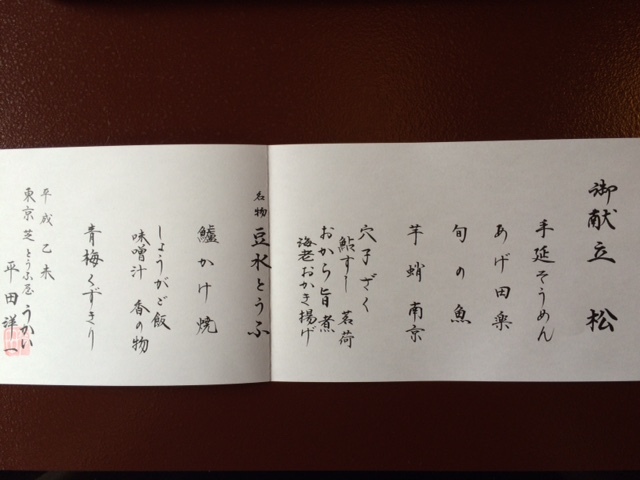 御献立 松
手延そうめん
あげ田楽
旬の魚
芋 蛸 南京
穴子ざく
鮎すし 茗荷
おから旨煮
海老おかき揚げ
名物 豆水とうふ
鱸かけ焼
しょうがご飯
味噌汁 香の物
青梅くずきり
平成乙未
東京芝とうふ屋うかい
平田洋一